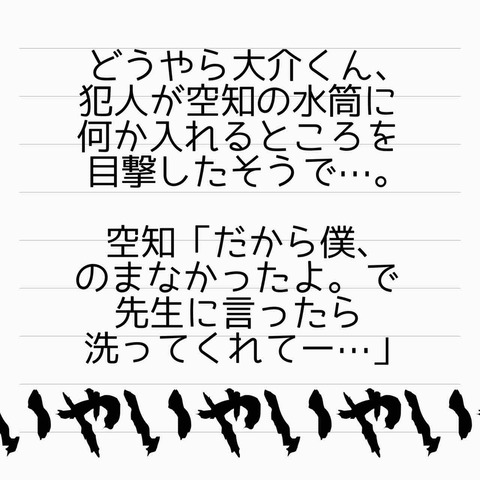 どうやら大介くん、
犯人が空知の水筒に
何か入れるところを
目撃したそうで…。
空知「だから僕、
のまなかったよ。で
先生に言ったら
洗ってくれてー…」
いやいやいやい